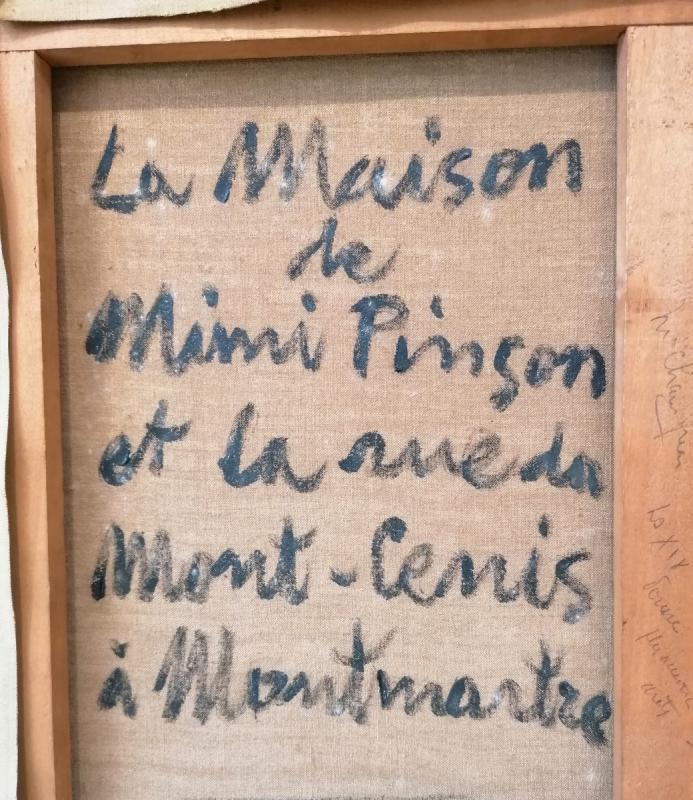 La Maison
de
Mimi Pinson
et la rue du
Mont-Cenis
à Montmartre